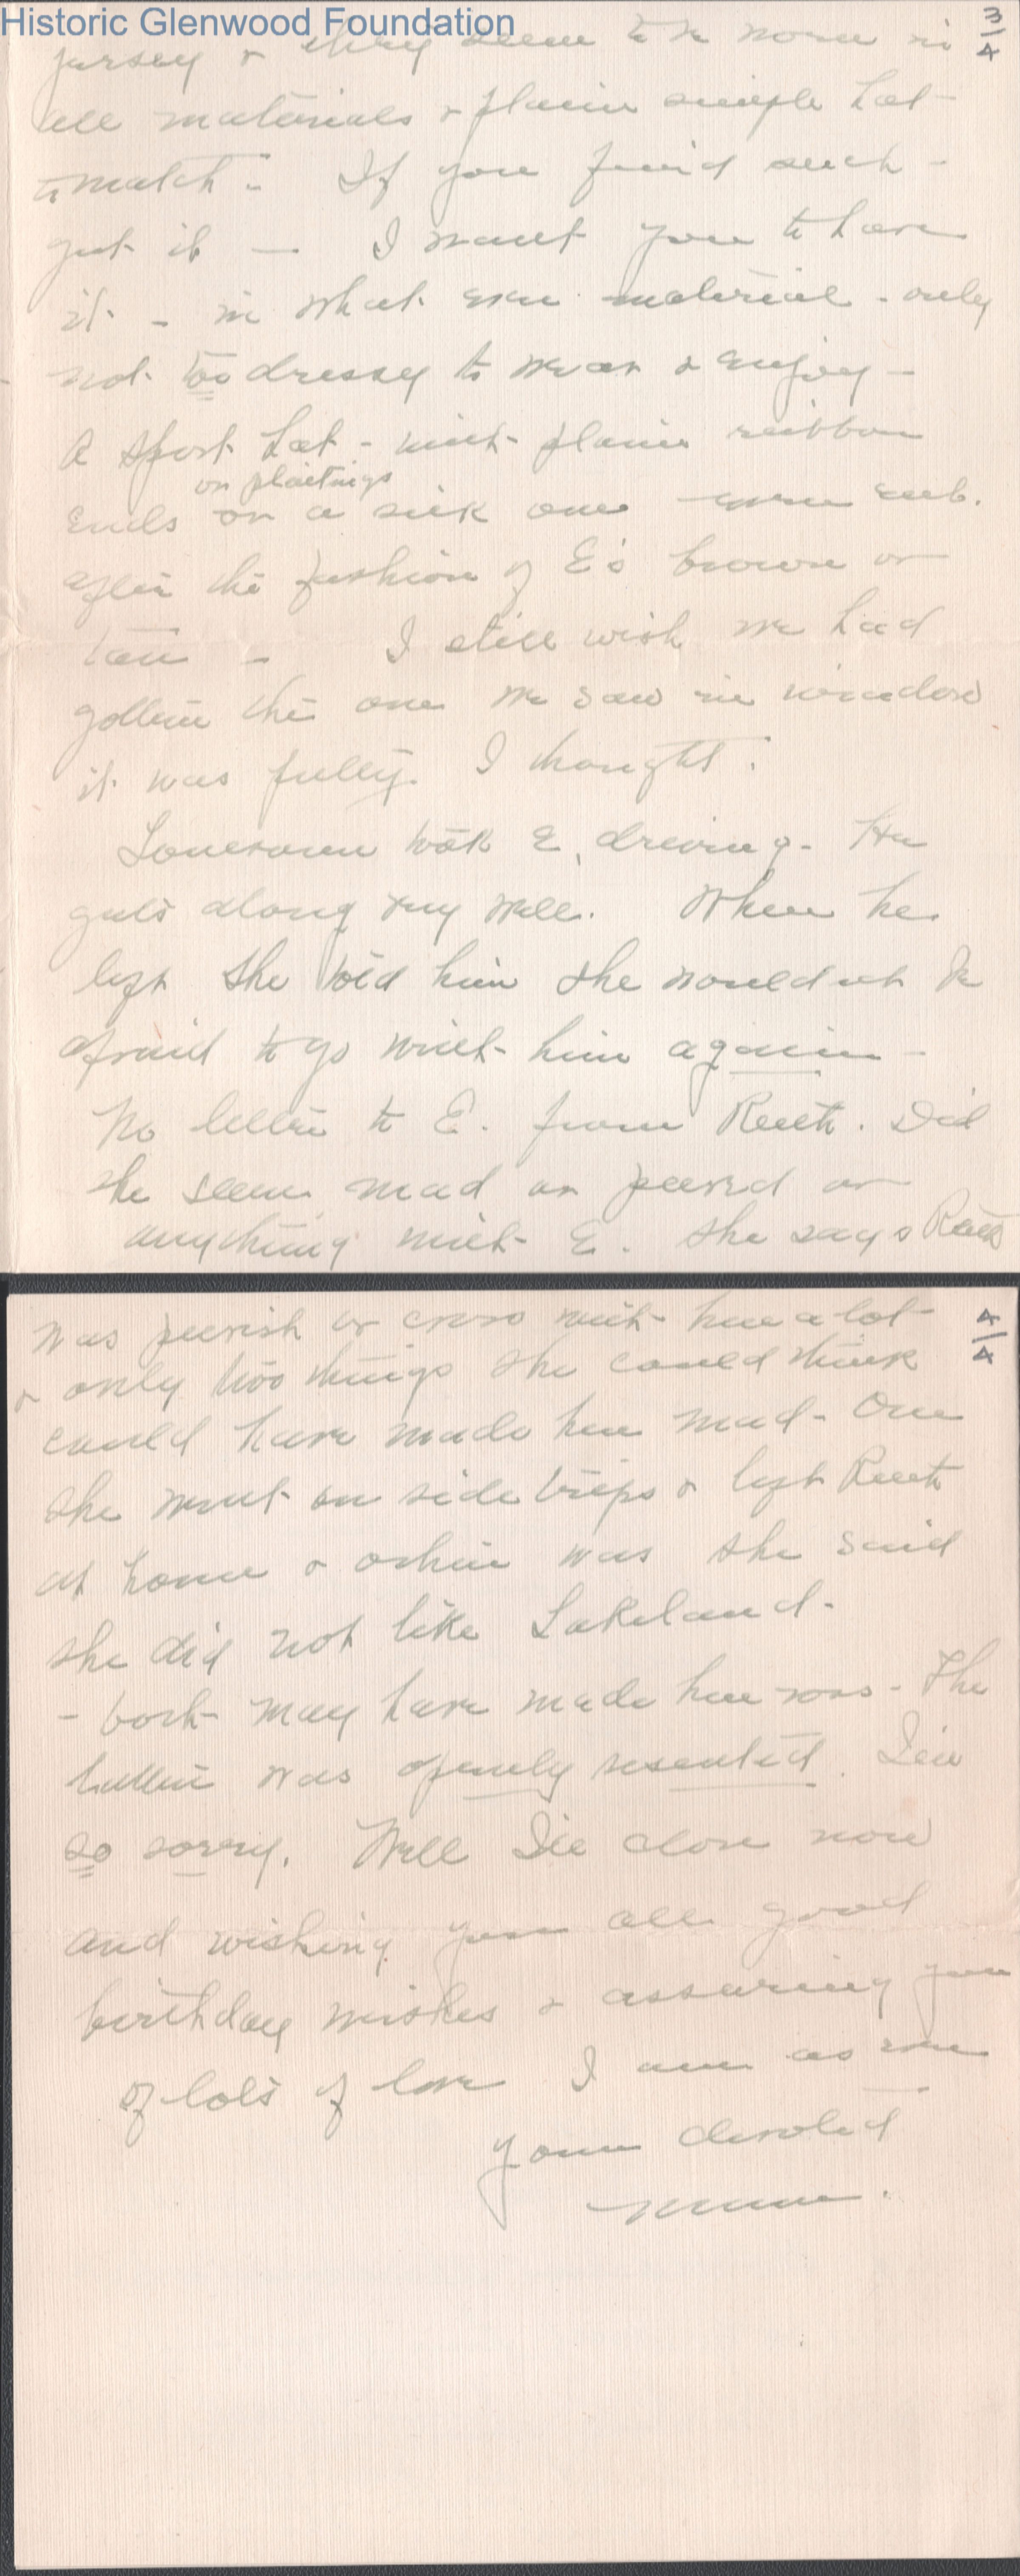 Historic Glenwood Foundation
3/4
jersey & they seem to be worn in
all materials & plain simple hat
to match. If you find such -
get it — I want you to have
it. - in what ever material - only
not too dressy to wear & enjoy -
A sport hat - with plain ribbon
or plaitings
ends or a silk one
after the fashion of E's brown or
tan - I still wish we had
gotten the one we saw in window
it was I thought.
Lonesome took E. driving. He
gets along very well. When he
left she told him she would not be
afraid to go with him again -
No letter to E. from Reeth. Did
she seem mad or peeved or
anything with E. She says
4/4
was peevish or cross with her a lot
& only two things she could think
could have made her mad - One
she went on side trips & left Reeth
at home & other was she said
she did not like Lakeland -
- both may have made her so - The
latter was openly resented. I'm
so sorry. Well I'll close now
and wishing you all good
birthday wishes & assuring you
of lots of love I am as ever
Your devoted